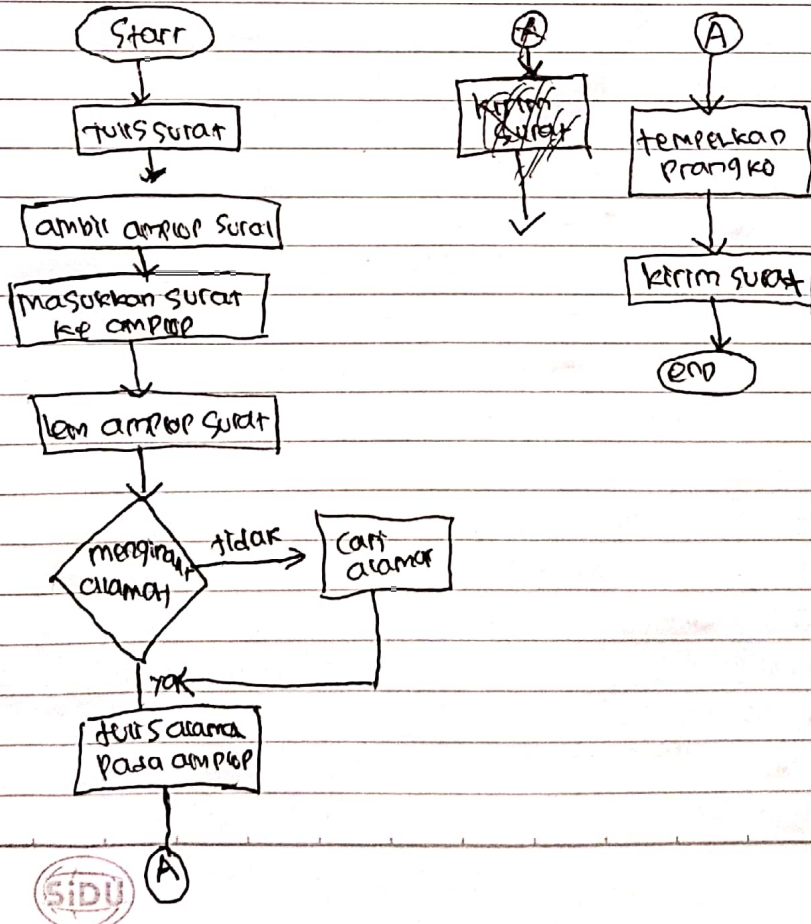 Start
tulis surat
ambil amplop surat
masukkan surat
ke amplop
lem amplop surat
mengingat
alamat
tidak
cari
alamat
ya
tulis alamat
pada amplop
A
A
kirim
surat
A
tempelkan
prangko
kirim surat
end
SiDU